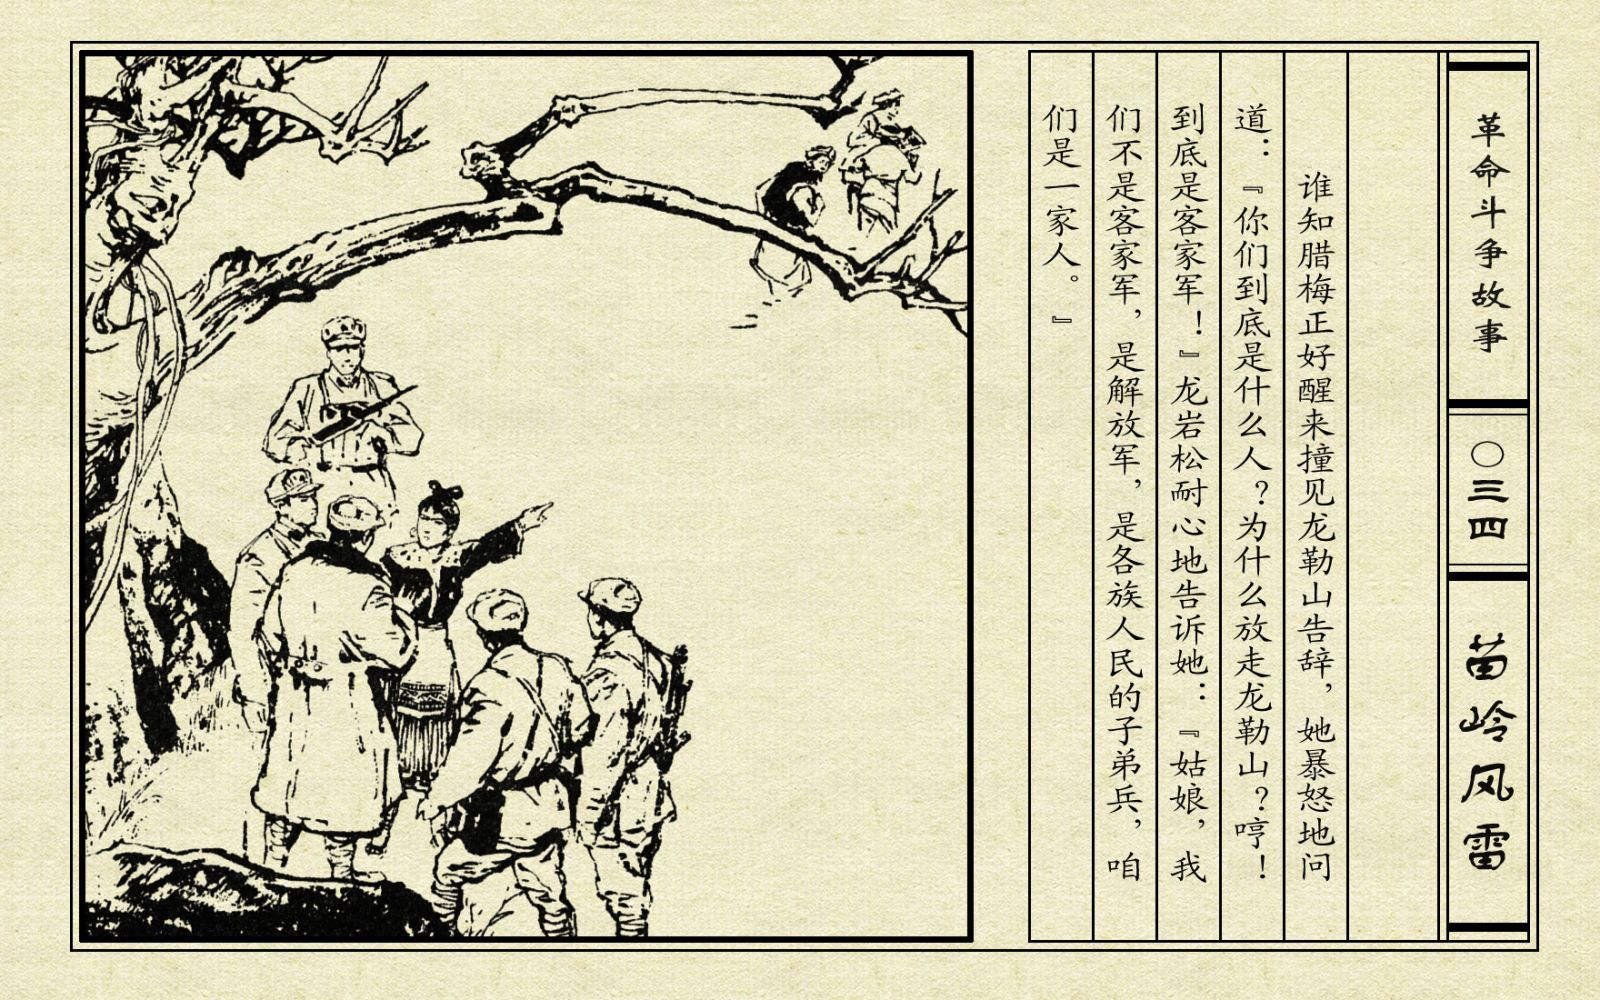 革命斗争故事
〇三四
苗岭风雷
谁知腊梅正好醒来撞见龙勒山告辞，她暴怒地问
道：『你们到底是什么人？为什么放走龙勒山？哼！
到底是客家军！』龙岩松耐心地告诉她：『姑娘，我
们不是客家军，是解放军，是各族人民的子弟兵，咱
们是一家人。』